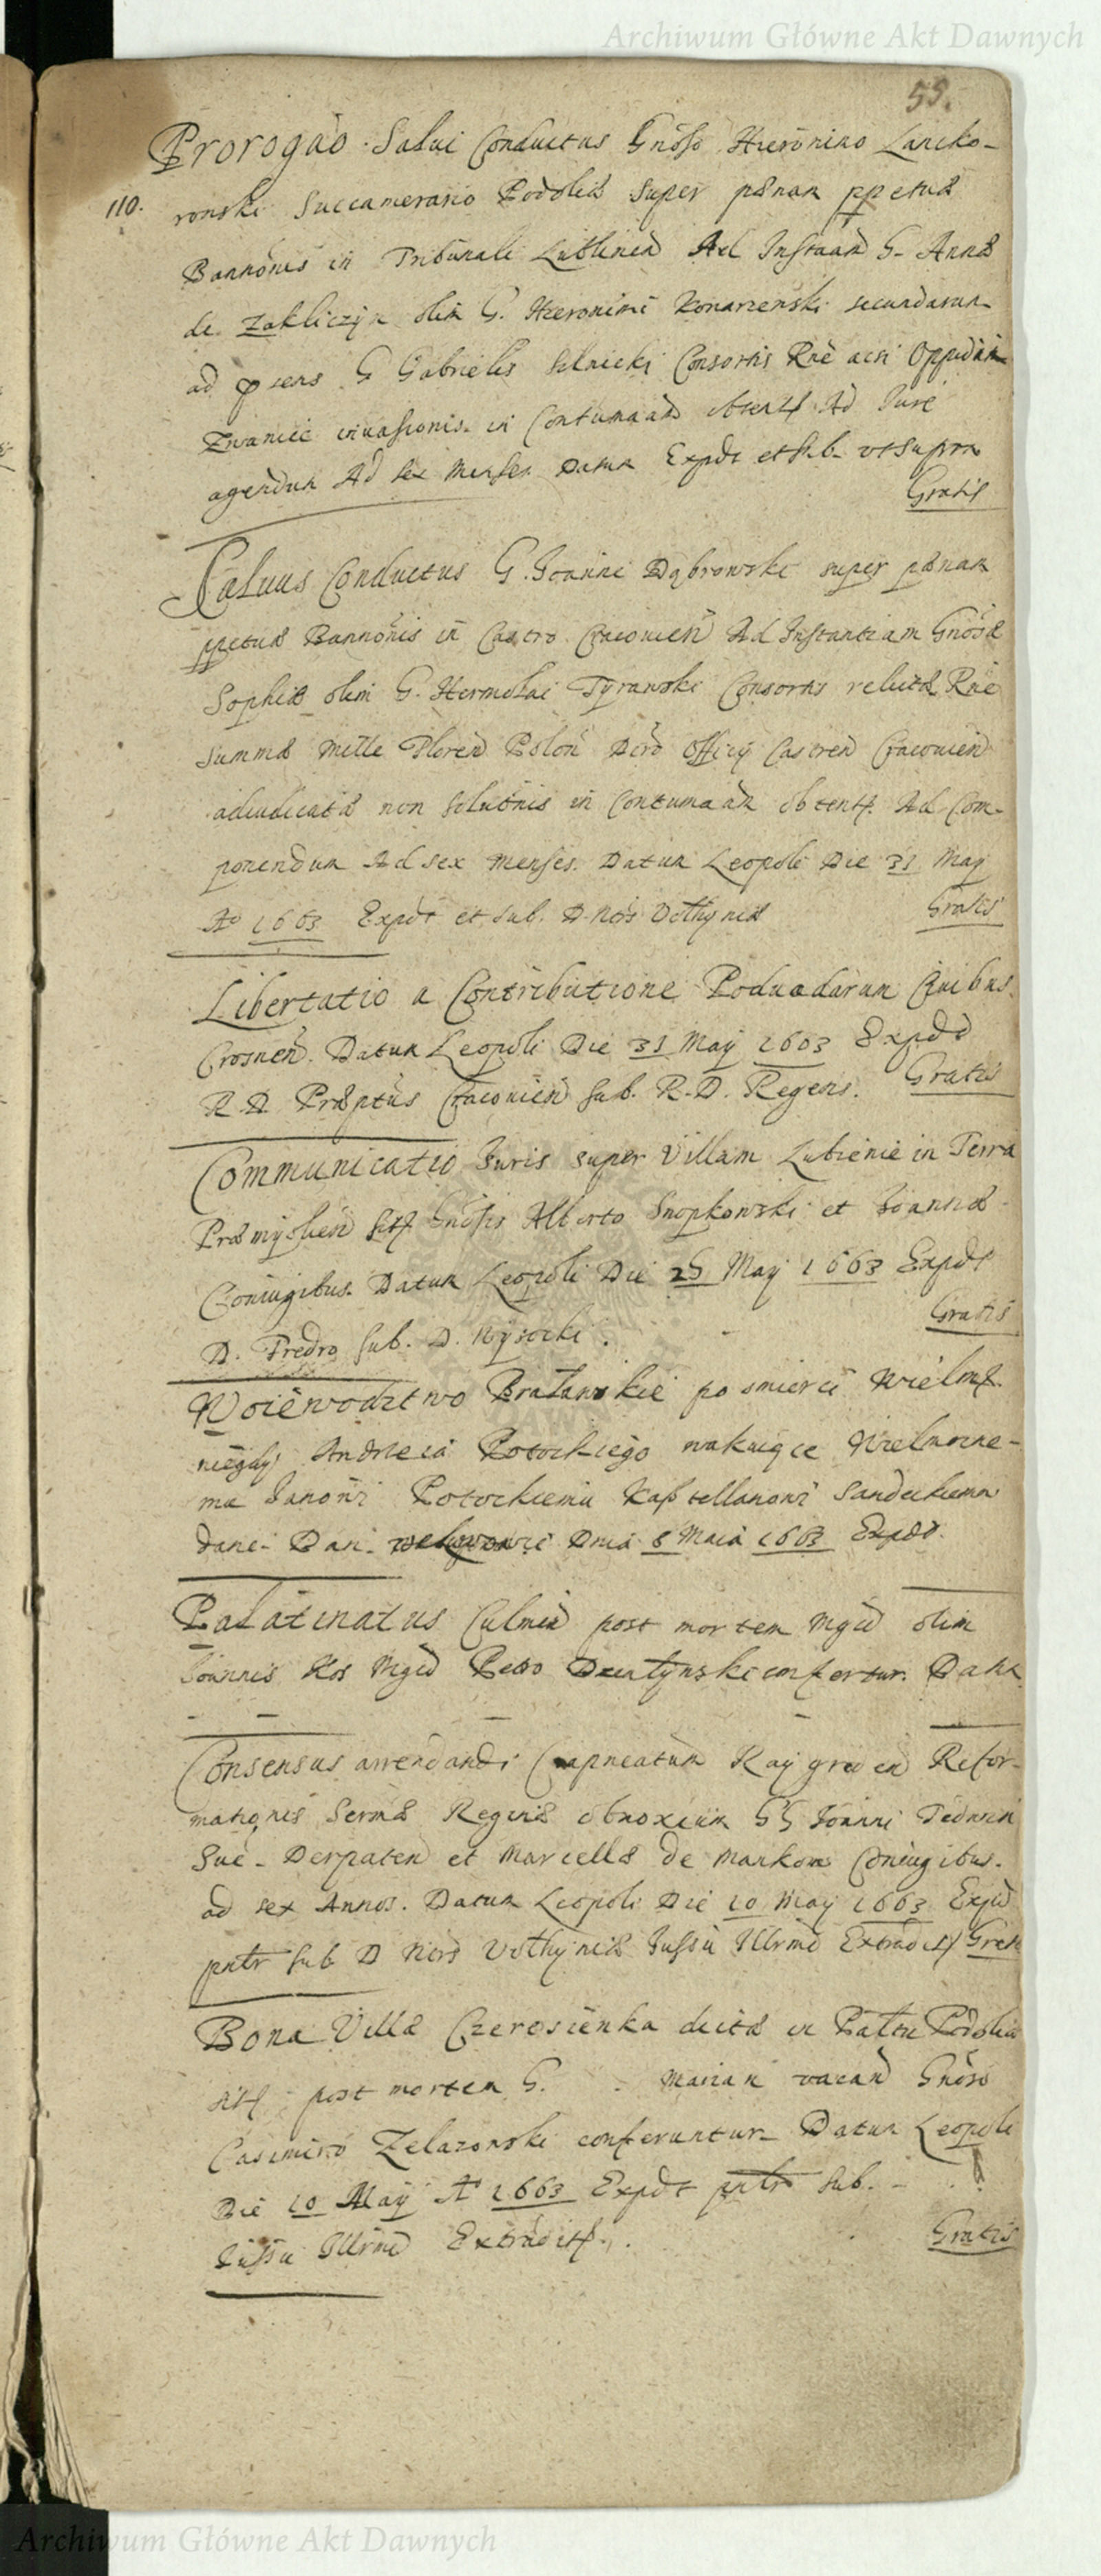 Archiwum Główne Akt Dawnych
59.
Prorogão Salui Conductus Gnõso Hieronimo Lancko-
110.
ronski Succamerario Podoliæ super pænam ppetuæ
Bannõnis in Tribunali Lublineñ Ad Instaañ G. Annæ
de Zakliczyn olim G. Hieronimi Konarzenski secundarum
ad pñens G Gabrielis Silnicki Consortis Rñe acsi Oppidañ
Zwaniec inuasionis in Contumaañ obtent Ad Jure
agendum Ad sex Menses Datum Expdt et sub. vt supra
Gratis
Saluus Conductus G. Joanni Dąbrowski super pænam
ppetuæ Bannõnis in Castro Cracouieñ Ad Instantiam Gnõsæ
Sophiæ olim G. Hermolai Tyrawski Consortis relictæ Rñe
summæ Mille Floreñ Poloñ Offici Castreñ Cracouieñ
adiudicatæ non solutõnis in Contumaam obtent. Ad Com-
ponendum Ad sex Menses. Datum Leopoli Die 31 May
Aõ 1663 Expdt et sub. D. Nots Volhyniæ
Gratis
Libertatio a Contributione Poduodarum Ciuibus
Crosneñ. Datum Leopoli Die 31 May 1663 Expdt
R. D. Præptus Cracouieñ sub. R. D. Regens.
Gratis
Communicatio Juris super Villam Lubienie in Terra
Præmysleñ sit Gnõsis Alberto Snopkowski et Joannæ
Coniugibus. Datum Leopoli Die 25 May 1663 Expdt
D. Fredro sub. D. Wysocki.
Gratis
Woiewodztwo Bracławskie po smierci Wielmż.
niegdy Andrzeia Potockiego wakuiące Wielmożne-
mu Janowi Potockiemu Kasztellanowi Sandeckiemu
dane. Dan. we Lwowie Dnia 8 Maia 1663 Expdt.
Palatinatus Culmeñ post mortem Mgci olim
Joannis Kos Mgco Petro Działynski confertur. Datum
Consensus arrendandi Capneatum Raygrodeñ Refor-
mationis Sermæ Reginæ obnoxium GG Joanni
Suc. Derpateñ et Marcellæ de Mankow Coniugibus.
ad sex Annos. Datum Leopoli Die 10 May 1663 Expdt
pntr sub D Nots Volhyniæ Jussu Illrmi Extradit Gratis
Bona Villæ Czerosienka dictæ in Palttu Podoliæ
sit post mortem G. . Marian vacan Gnõso
Casimiro Zelazowski conferuntur. Datum Leopoli
Die 10 May Aõ 1663 Expdt pntr sub.
Jussu Illrmi Extradit.
Gratis
Archiwum Główne Akt Dawnych